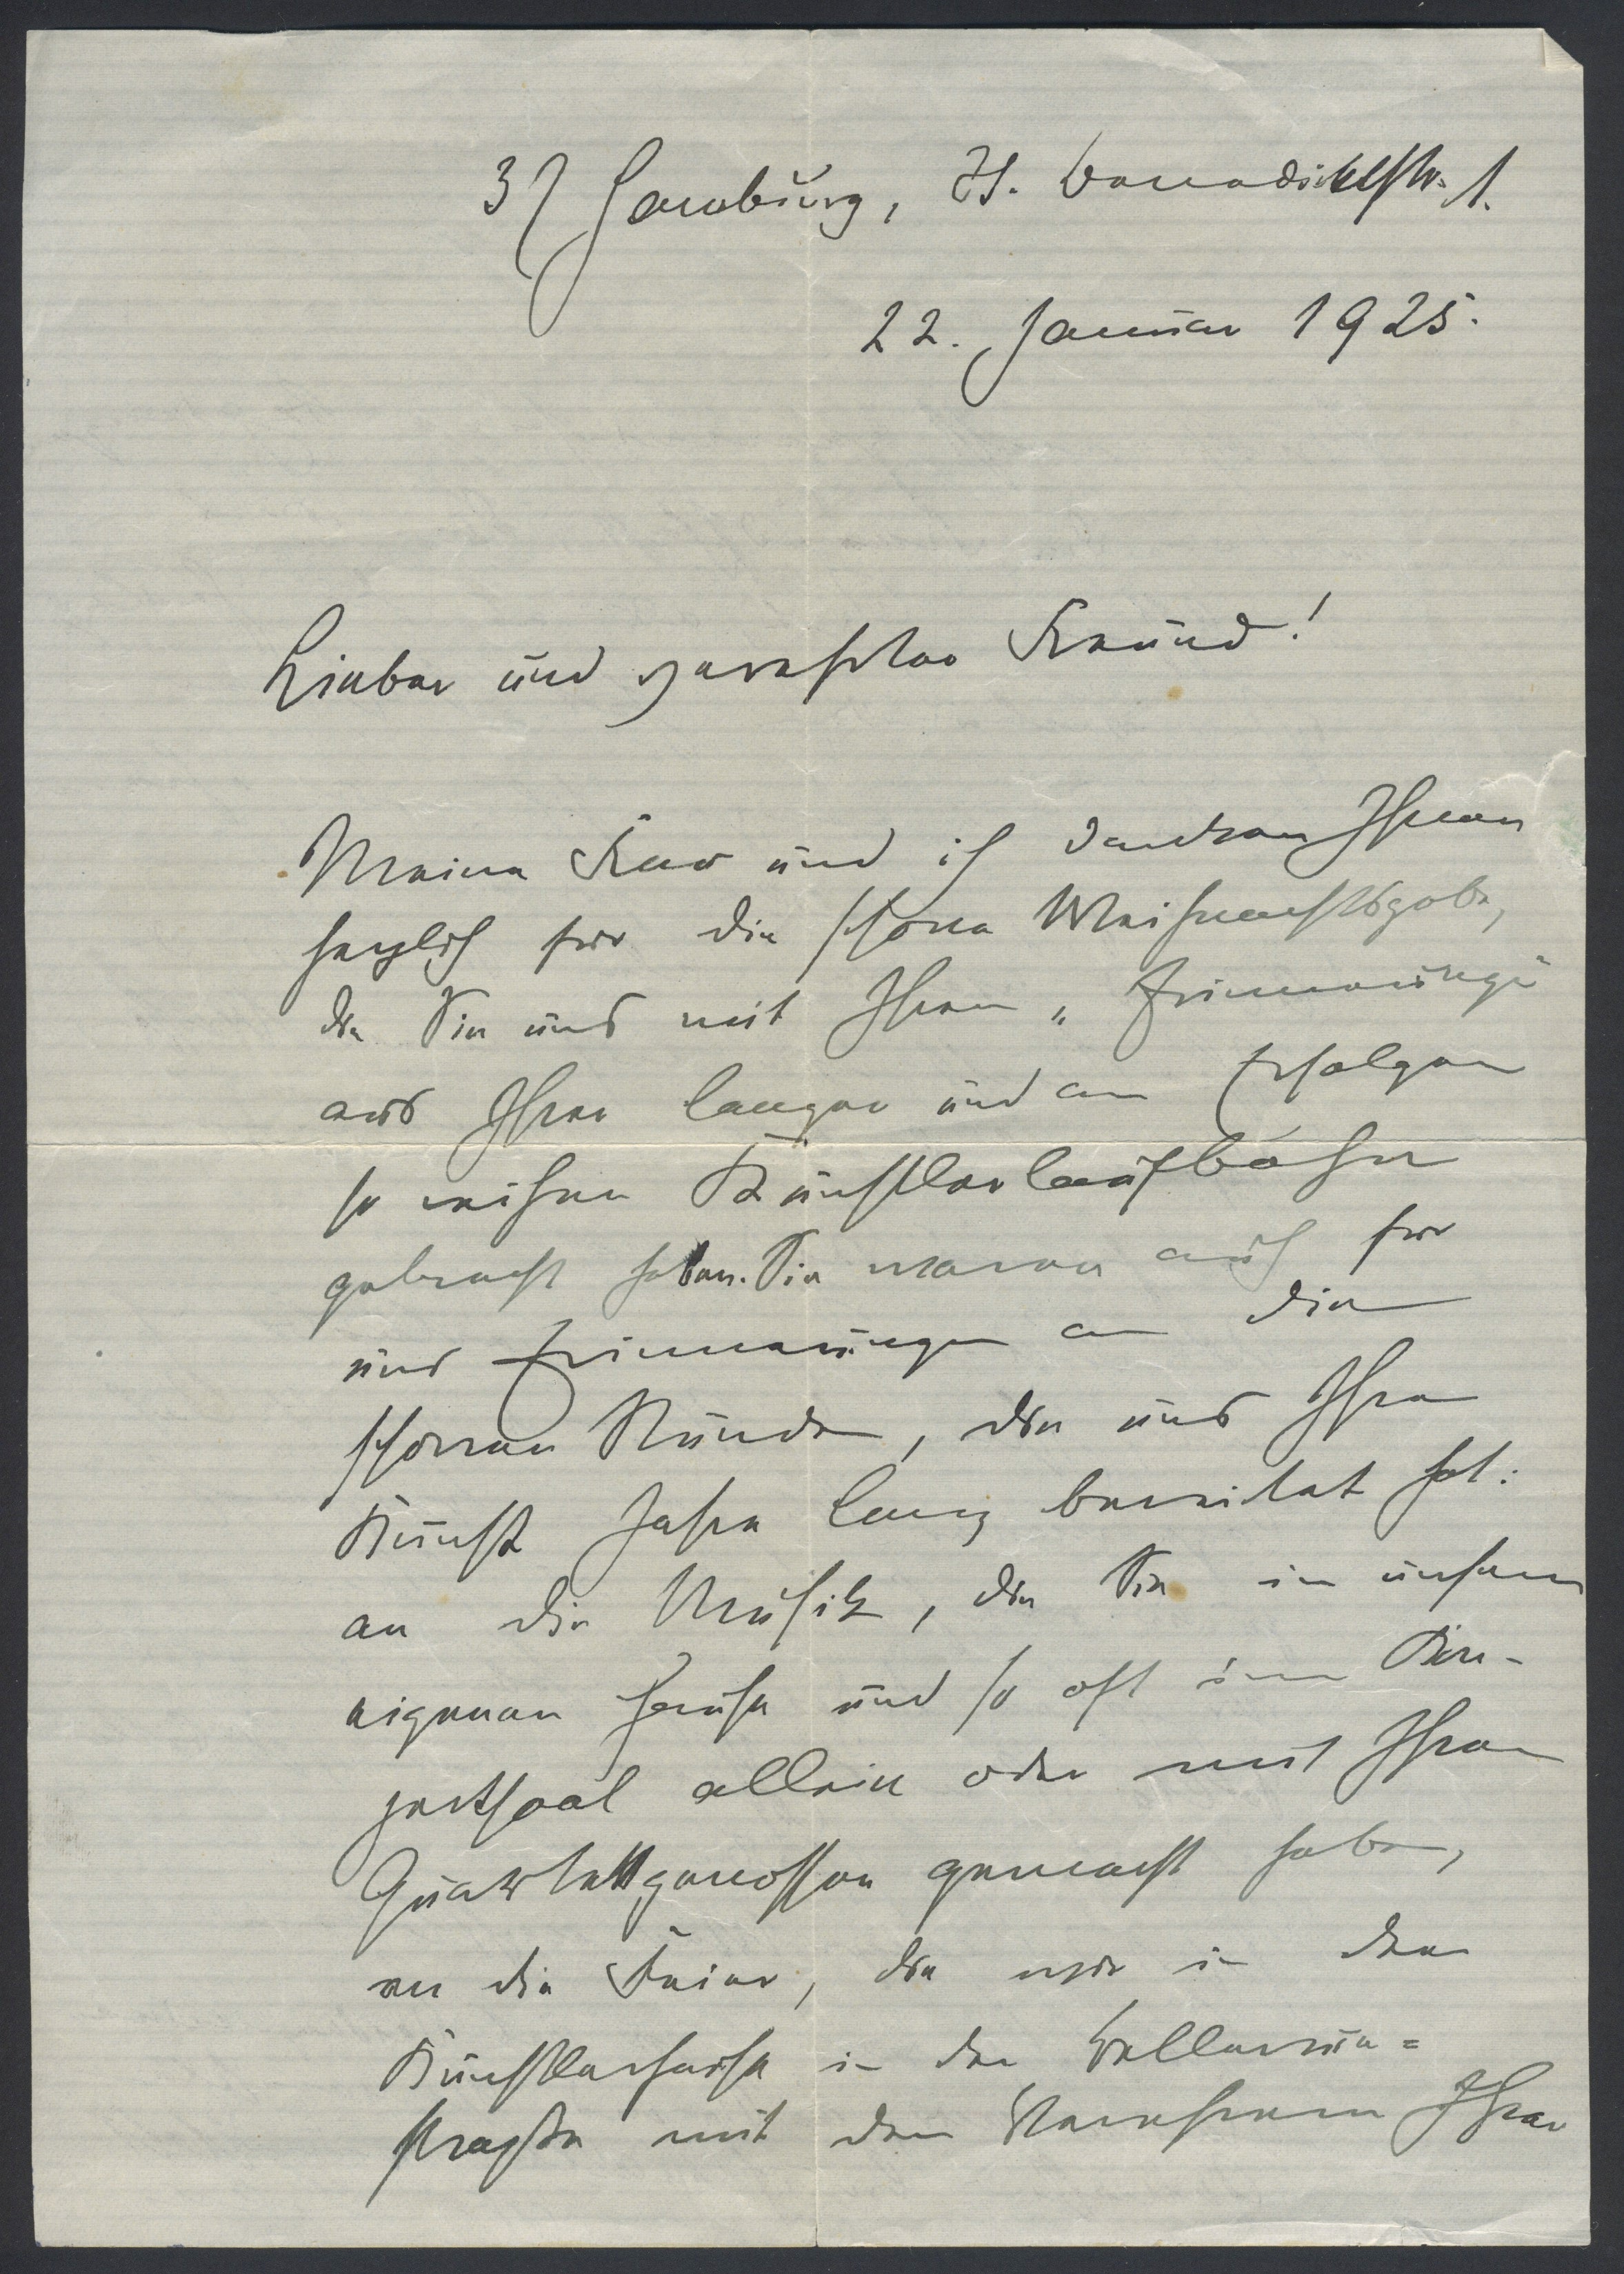 37 Hamburg, St. Benedictstr. 1.
22. Januar 1925.
Lieber und verehrter Freund!
Meine Frau und ich danken Ihnen
herzlich für die schöne Weihnachtsgabe,
die Sie uns mit Ihren „Erinnerungen"
aus Ihrer langen und an Erfolgen
so reichen Künstlerlaufbahn
gebracht haben. Sie waren auch für
uns Erinnerungen an die
schönen Stunden, die uns Ihre
Kunst Jahre lang bereitet hat:
an die Musik, die Sie in unserem
eigenen Hause und so oft im Kon-
zertsaal allein oder mit Ihren
Quartettgenossen gemacht haben,
an die Feier, die wir in dem
Künstlerhause in der Bellevue-
straße mit den Verehrern Ihrer